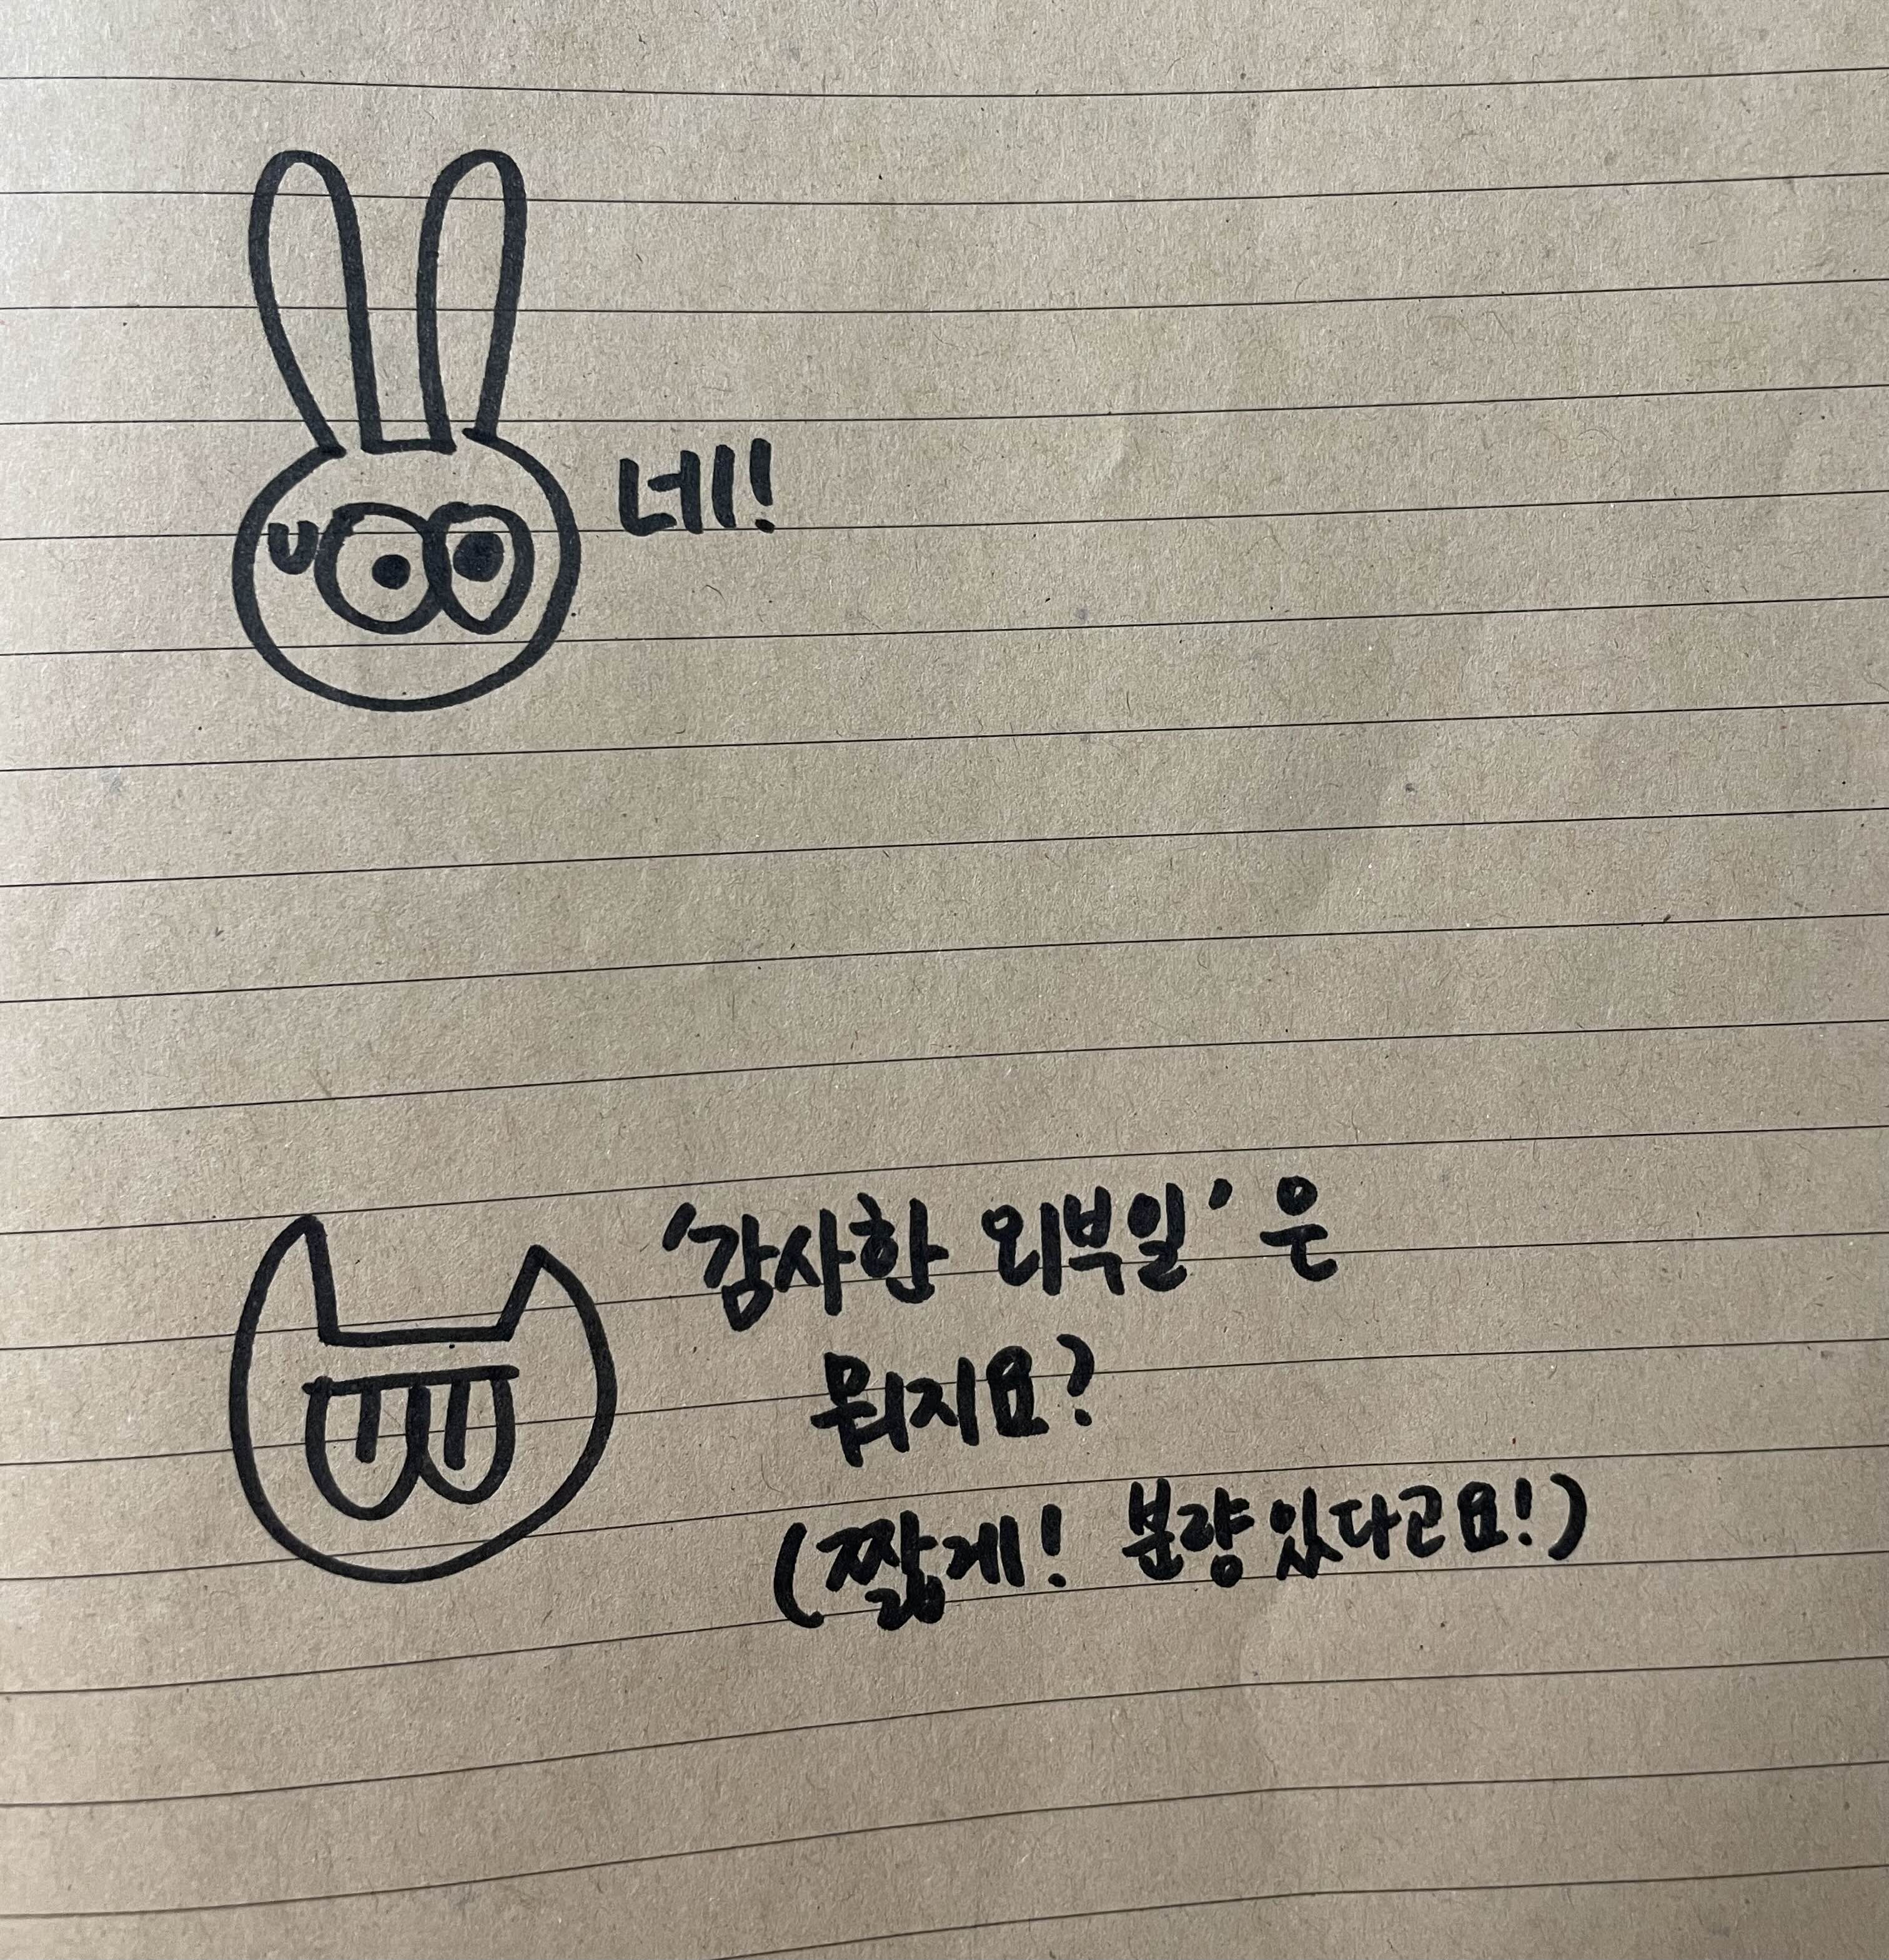 네!
'감사한 외부일'은
뭐지요?
(짧게! 분량 있다고요!)